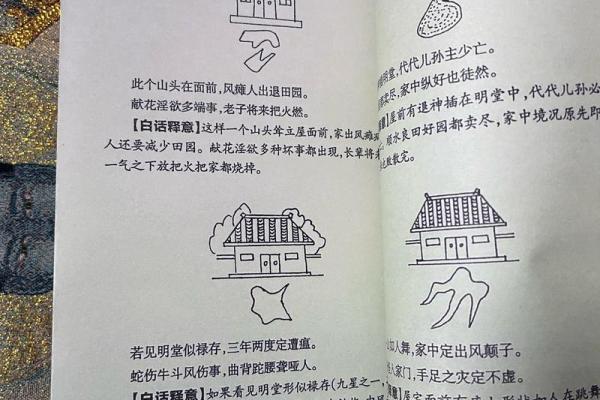 此个山头在面前,风瘫人出退田园。
献花淫欲多端事,老子将来把火燃。
【白话释意】这样一个山头耸立屋面前,家出风瘫
人还要减少田园。献花淫欲多种坏事都出现,长辈将
一气之下放把火把家都烧掉。
若见明堂似禄存,三年两度定遭瘟。
蛇伤牛斗风伤事,曲背跎腰聋哑人。
【白话释意】如果看见明堂形似禄存(九星之一,
明堂,代代儿孙主少亡。
卖尽,家中纵好也徒然。
屋前有退神插在明堂中,代代儿孙必
顺水良田好园都卖尽,家中境况原先即
败散完。
如人舞,家中定出风颠子。
人家门,手足之灾定不虚。